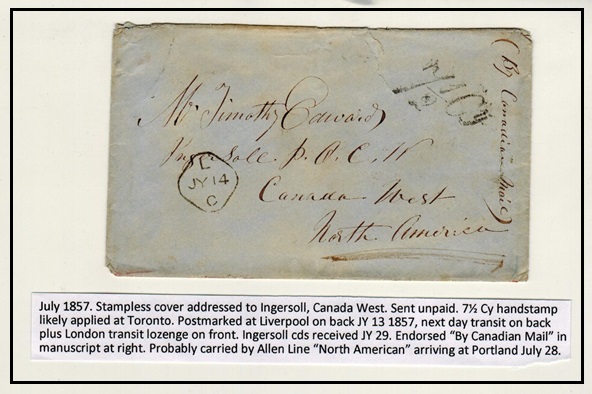 (By Canadian Mail)
7½ Cy
Mr Timothy Edward
Ingersoll. P. O. C. W
L
JY 14
C
Canada West
North America
July 1857. Stampless cover addressed to Ingersoll, Canada West. Sent unpaid. 7½ Cy handstamp
likely applied at Toronto. Postmarked at Liverpool on back JY 13 1857, next day transit on back
plus London transit lozenge on front. Ingersoll cds received JY 29. Endorsed “By Canadian Mail” in
manuscript at right. Probably carried by Allen Line “North American” arriving at Portland July 28.